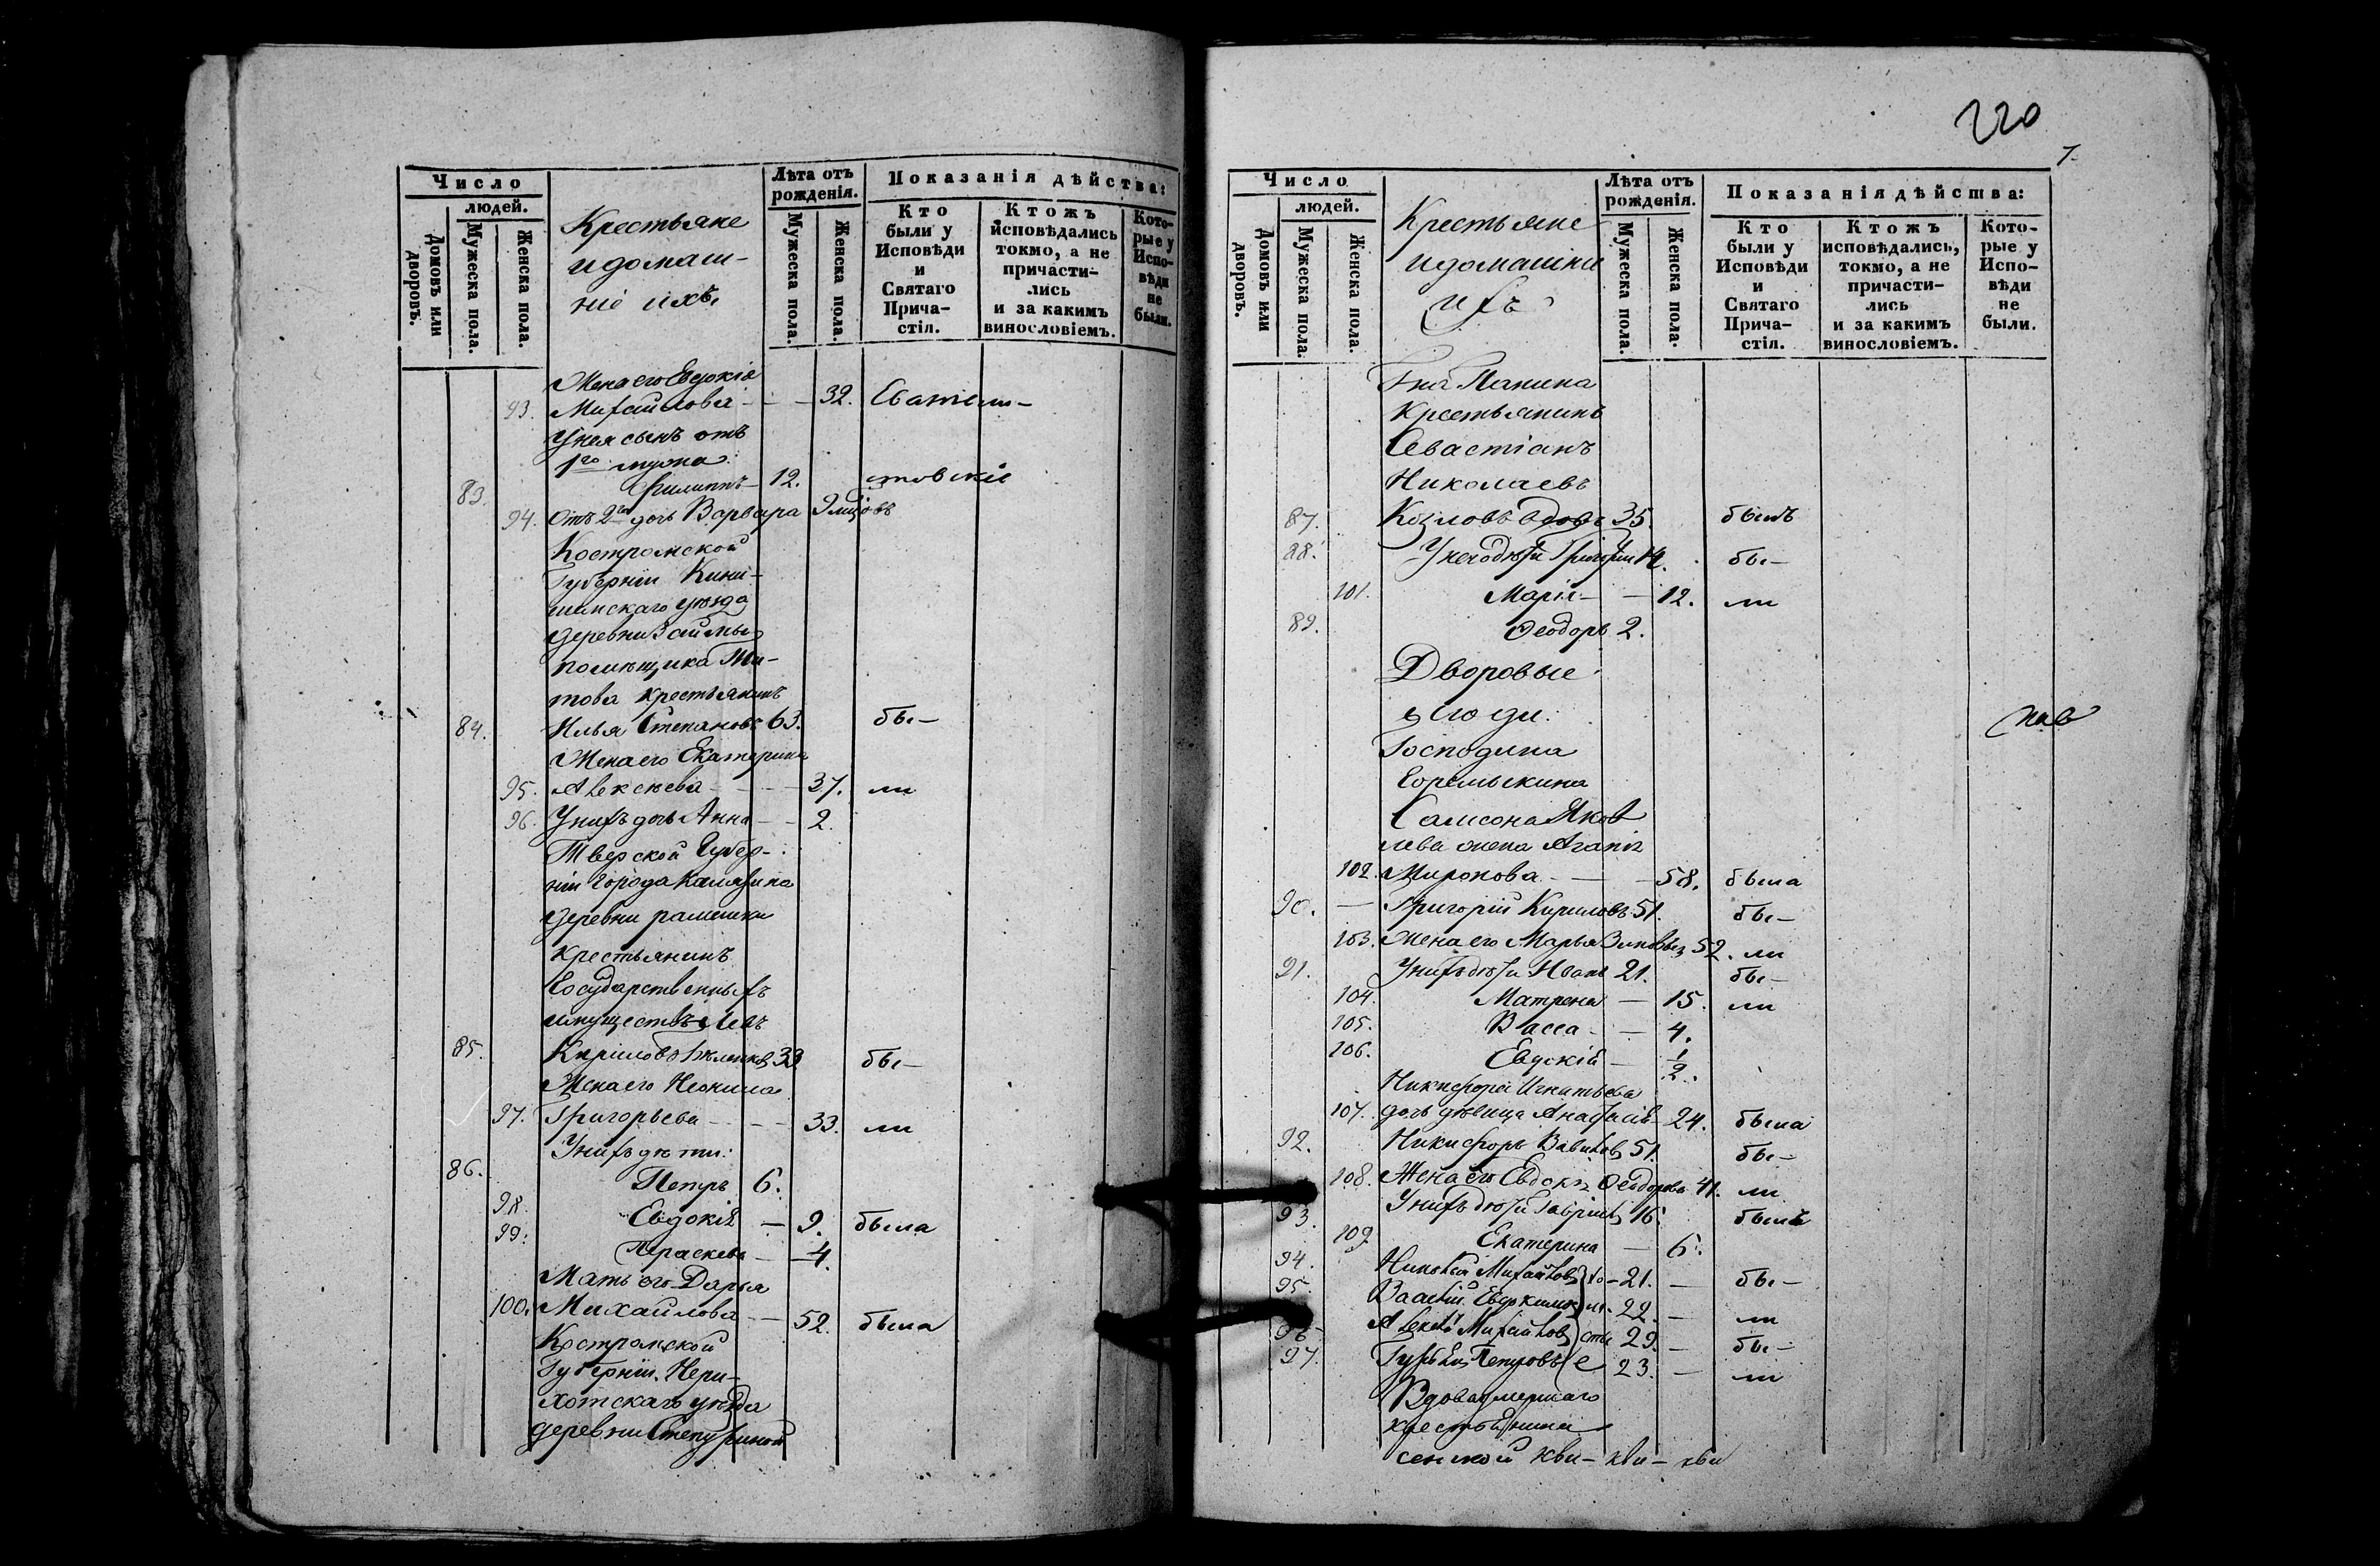 Число
людей.
Домовъ или дворовъ.
Мужеска пола.
Женска пола.
Крестьяне
и домаш-
ніе ихъ,
Лѣта отъ рожденія.
Мужеска пола.
Женска пола.
Показанія дѣйства:
Кто были у Исповѣди и Святаго Прича-стія.
Ктожъ исповѣдались токмо, а не причасти-лись и за какимъ винословіемъ.
Кото-рые у Испо-вѣди не были.
Жена его Евдокія
93. Михайлова - - 32.
У нея сынъ отъ
1го мужа:
83. Филиппъ - 12.
94. Отъ 2го дочь Варвара 9 мѣ
Костромской
Губерніи Кине-
шемскаго уѣзда
деревни Займы
помѣщика Ти-
това крестьянинъ
84. Илья Степановъ 63. бы-
Жена его Екатерина
95. Алексѣева - - 37. ли
96. У нихъ дочь Анна - - 2.
Тверской Губер-
ніи города Калязина
деревни рамешки
крестьянинъ
Государственныхъ
имуществъ Левъ
85. Кириловъ 33 бы-
Жена его Неонила
97. Григорьева - - 33. ли
У нихъ дѣти:
86. Петръ 6.
98. Евдокія - 9. была
99. Параскева - 4.
Мать его Дарья
100. Михайлова - - 52. была
Костромской
Губерніи, Нере-
хотскаго уѣзда
деревни
220
7.
Число
людей.
Домовъ или дворовъ.
Мужеска пола.
Женска пола.
Крестьяне
и домашніе
ихъ
Лѣта отъ рожденія.
Мужеска пола.
Женска пола.
Показанія дѣйства:
Кто были у Исповѣди и Святаго Прича-стія.
Ктожъ исповѣдались, токмо, а не причасти-лись и за какимъ винословіемъ.
Кото-рые у Испо-вѣди не были.
Гна Панина
Крестьянинъ
Севастіанъ
Николаевъ
87. Козловъ вдовъ 35. былъ
88. У него дѣти Григорій 14. бы-
101. Марія - - 12. ли
89. Ѳеодоръ 2.
Дворовые
Господина
Горемыкина
Самсона Яков
лева жена Агапія
102. Миронова - - 58. была
90. - Григорій Кириловъ 51. бы-
103. Жена его Марья 52. ли
91. У нихъ дѣти Иванъ 21. бы-
104. Матрена - 15. ли
105. Васса - - 4.
106. Евдокія - 1/2.
Никифора Игнатьева
107. дочь дѣвица Анастасія - 24. была
92. Никифоръ 51. бы-
108. Жена его Евдокія Ѳеодорова 41. ли
93. У нихъ дѣти Гавріилъ 16. былъ
109. Екатерина - 6.
94. Николай Михайловъ - 21. - бы-
95. Василій Евдокимовъ 22. - ли
96. Алексѣй Михайловъ 29. - бы-
97. Петровъ 23. - ли
Вдова умершаго